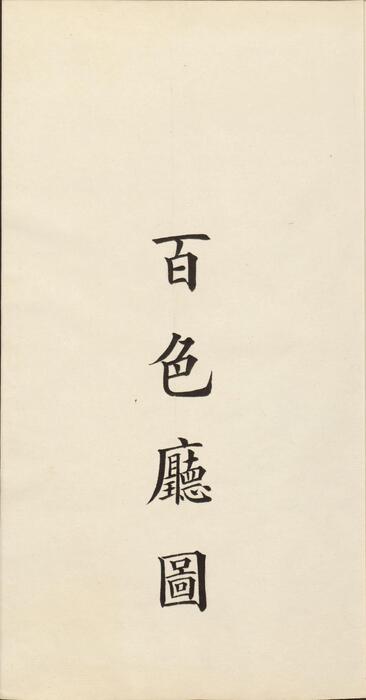 百色廳圖